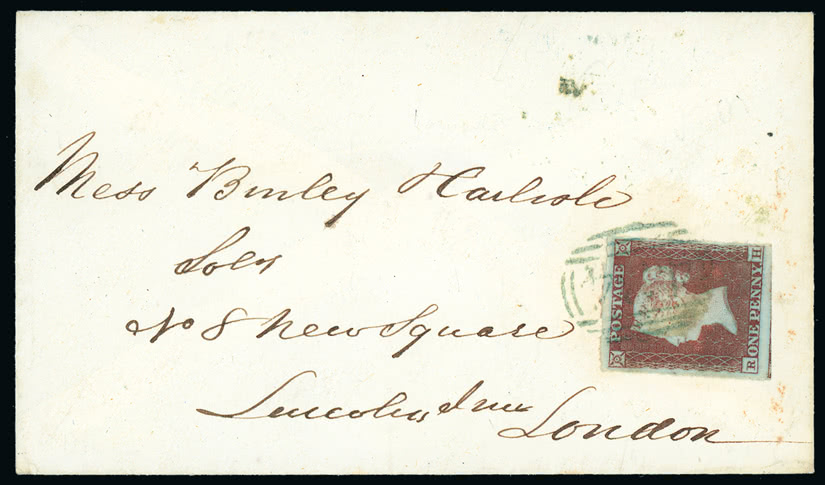 Mess Binley Hailsole
Solrs
No 8 New Square
Lincolns Inn
London
POSTAGE
ONE PENNY.
R
H